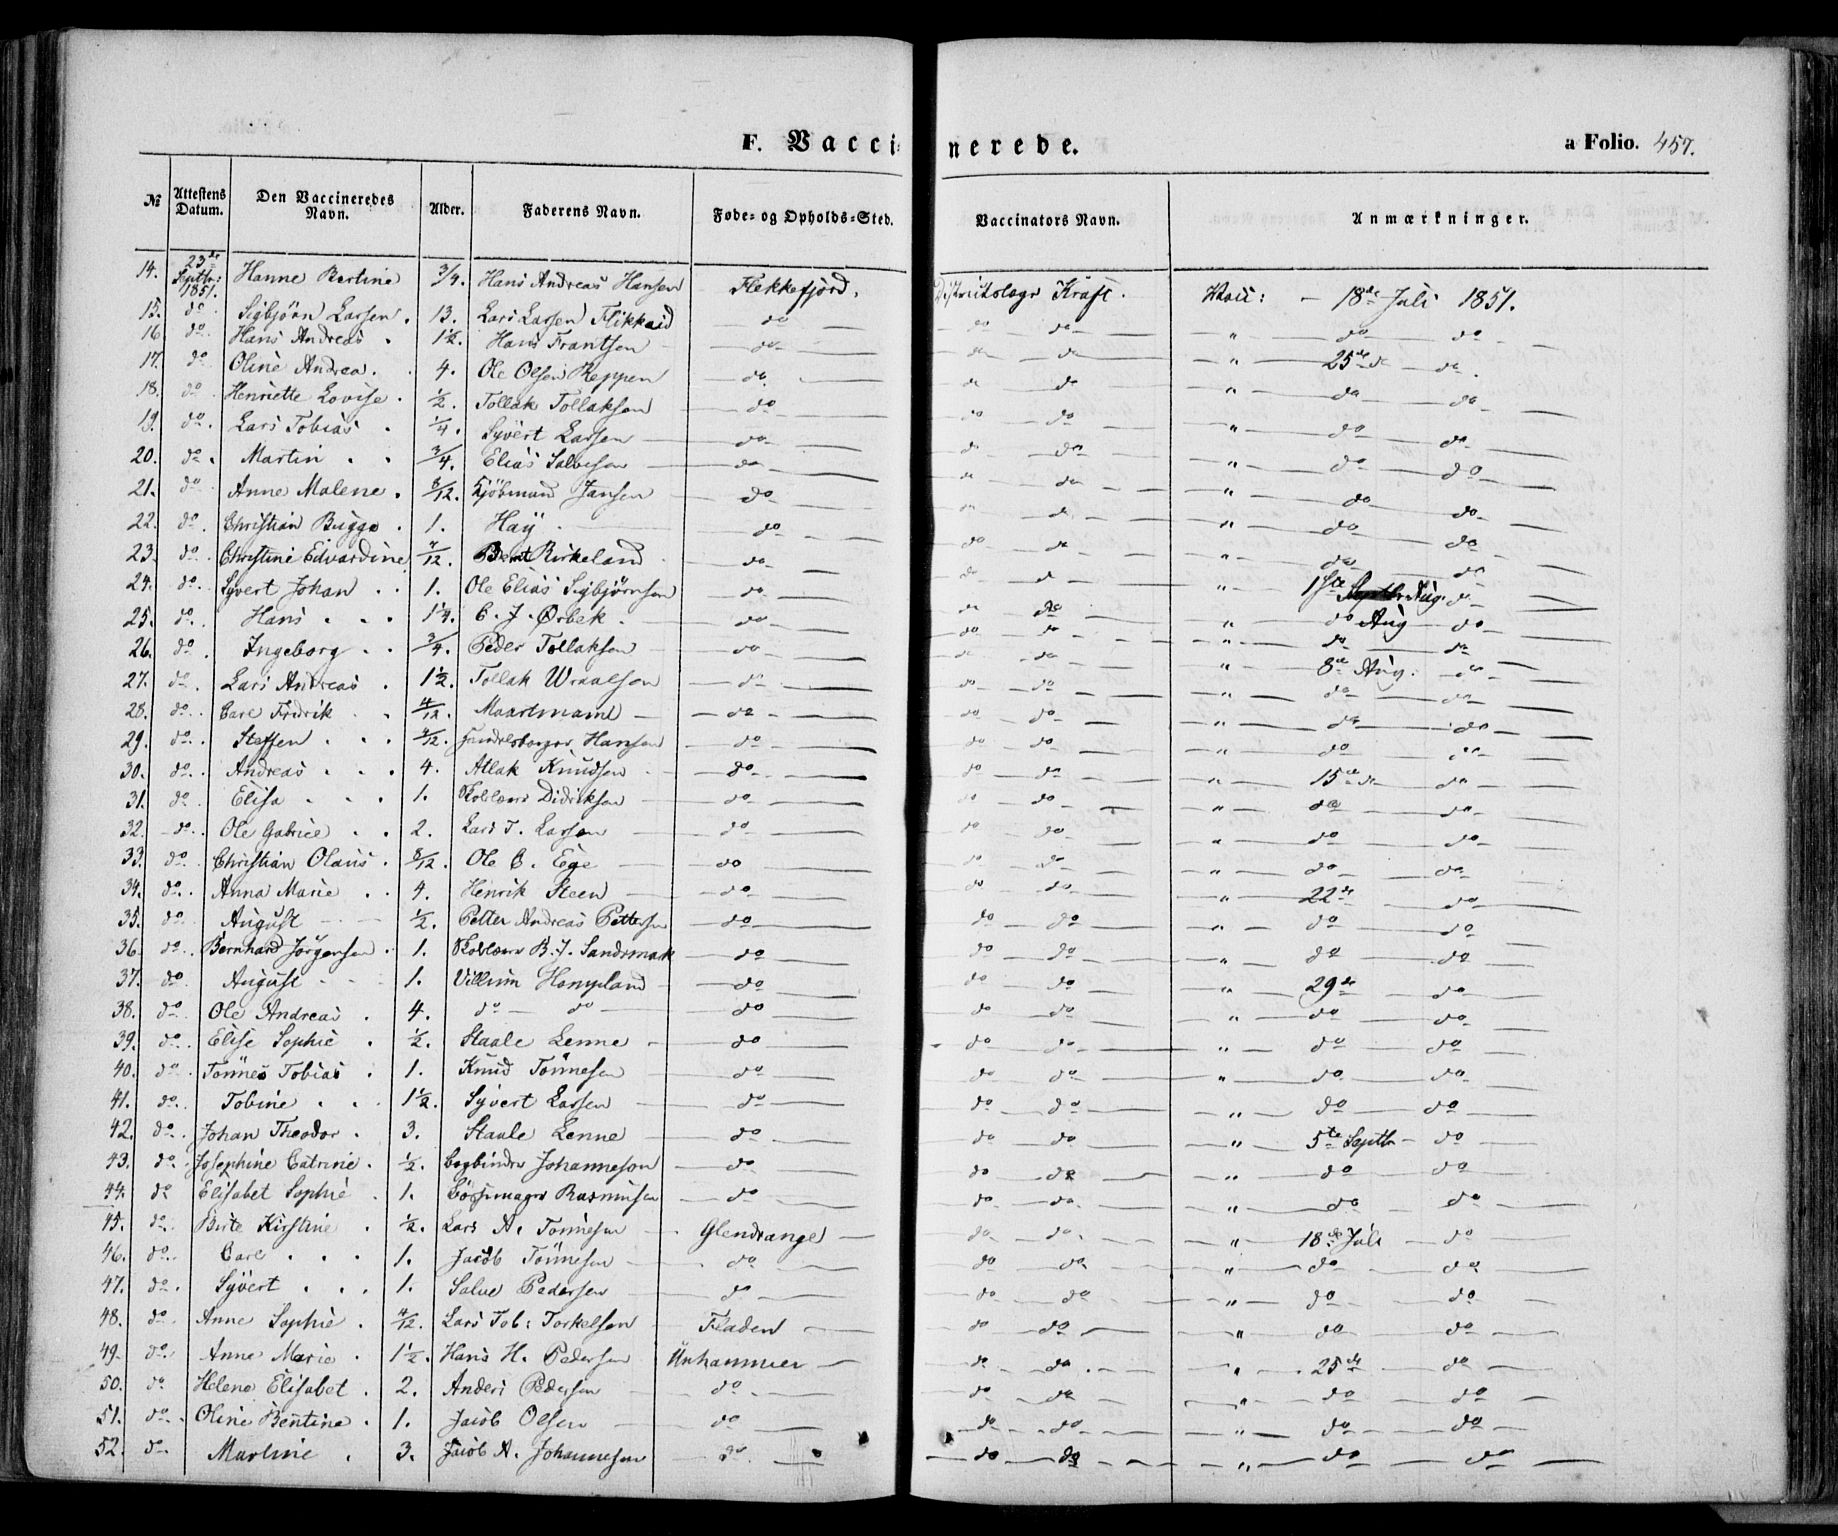 F. Vaccinerede.
a Folio. 457.
№ | Attestens Datum. | Den Vaccineredes Navn. | Alder. | Faderens Navn. | Føde- og Opholds-Sted. | Vaccinators Navn. | Anmærkninger.
14. | 23de Septbr: 1851. | Hanne Bertine | 3/4. | Hans Andreas Hansen | Flekkefjord. | Districtslæge Kraft. | 18de Juli 1851.
15. | do | Sigbjörn Larsen. | 13. | Lars Larsen Flikkeid | do | do do | " do do
16. | do | Hans Andreas. | 1 1/2. | Hans Frantsen | do | do do | " 25de do do
17. | do | Oline Andrea. | 4. | Ole Olsen Reppen | do. | do do | " do do
18. | do | Henriette Lovise. | 1/2. | Tollak Tollaksen | do | do do | " do do
19. | do. | Lars Tobias. | 1/4. | Syvert Larsen | do | do do | " do do
20. | do. | Martin | 3/4. | Elias Salvesen | do | do do | " do do
21. | do | Anne Malene. | 8/12. | Kjöbmand Jansen | do | do do | " do do
22. | do. | Christian Bugge. | 1. | Hay | do | do do | " do do
23. | do. | Christine Edvardine | 4/12. | Bernt Kirkeland | do | do do | " 1ste Aug. do
24. | do. | Syvert Johan | 1. | Ole Elias Sigbjörnsen | do | do do | " do Aug do
25. | do. | Hans | 1 1/4. | C. J. Ørbek. | do | do do | " do do
26. | do. | Ingeborg | 3/4. | Peder Tollaksen | do | do do | " 8de Aug. do
27. | do. | Lars Andreas. | 1 1/2. | Tollak Wraalsen | do | do do | " do do
28. | do. | Carl Fredrik | 4/12. | Maartmann | do | do do | " do do
29. | do. | Steffen | 4/12. | Hansen | do | do do | " do do
30. | do. | Andreas | 4. | Atlak Knudsen | do | do do | " 15de do do
31. | do | Elisa | 1. | Didriksen | do | do do | " do do
32. | do. | Ole Gabriel | 2. | Lars T. Larsen | do | do do | " do do
33. | do. | Christian Olaus. | 8/12. | Ole C. Ege | do | do do | " do do
34. | do. | Anna Marie | 4. | Henrik Steen | do | do do | " 22de do
35. | do | August | 1/2. | Petter Andreas Pettersen | do | do do | " do do
36. | do. | Bernhard Jörgensen. | 1. | B. J. Sandsmark | do | do do | " do do
37. | do | August | 1. | Villum | do | do do | " 29de do
38. | do. | Ole Andreas. | 4. | do do | do | do do | " do do
39. | do. | Elise Sophie. | 1/2. | Staale Lenne | do | do do | " do do
40. | do | Tönnes Tobias. | 1. | Knud Tönnesen | do | do do | " do do
41. | do. | Tobine | 1 1/2. | Syvert Larsen | do | do do | " do do
42. | do. | Johan Theodor. | 3. | Staale Lenne | do | do do | " 5te Septbr do
43. | do. | Josephine Catrine. | 1/2. | Bogbinder Johannesen | do | do do | " do do
44. | do | Elisabet Sophie. | 1. | Bössemager Rasmusen | do | do do | " do do
45. | do. | Birte Kirstine. | 1/2. | Lars A. Tönnesen | Glendrange | do do | " 18de Juli do
46. | do. | Carl | 1. | Jacob Tönnesen | do | do do | " do do
47. | do. | Syvert | 1. | Salve Pedersen | do | do do | " do do
48. | do. | Anne Sophie. | 4/12. | Lars Tob: Torkelsen | Fladen | do do | " do do
49. | do. | Anne Marie. | 1 1/2. | Hans H. Pedersen | Unhammer | do do | " 25de do
50. | do | Helene Elisabet. | 2. | Anders Pedersen | do | do do | " do do
51. | do. | Oline Bentine. | 1. | Jacob Olsen | do | do do | " do do
52. | do | Martine. | 3. | Jacob A. Johannesen | do | do do | " do do